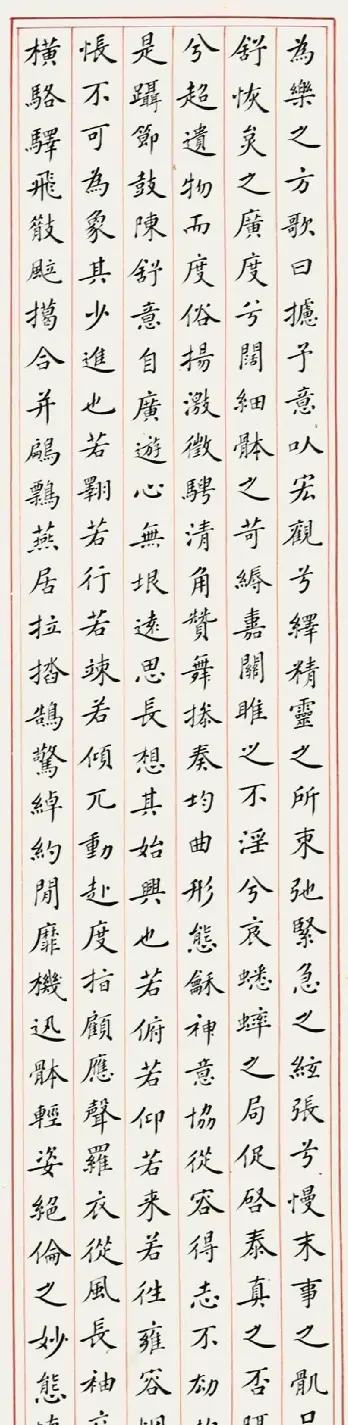 為樂之方歌曰攄予意㕥宏觀兮繹精靈之所束弛緊急之絃張兮慢末事之骩
舒恢炱之廣度兮闊細骵之苛縟嘉關雎之不淫兮哀蟋蟀之局促啓泰真之否
兮超遺物而度俗揚激徵騁清角贊舞操奏均曲形態龢神意協從容得志不劫
是躡節鼓陳舒意自廣遊心無垠遠思長想其始興也若俯若仰若来若往雍容
悵不可為象其少進也若翺若行若竦若傾兀動赴度指顧應聲羅衣從風長袖
橫駱驛飛散颯擖合并鶣䴩燕居拉㧺鵠驚綽約閒靡機迅骵輕姿絕倫之妙態